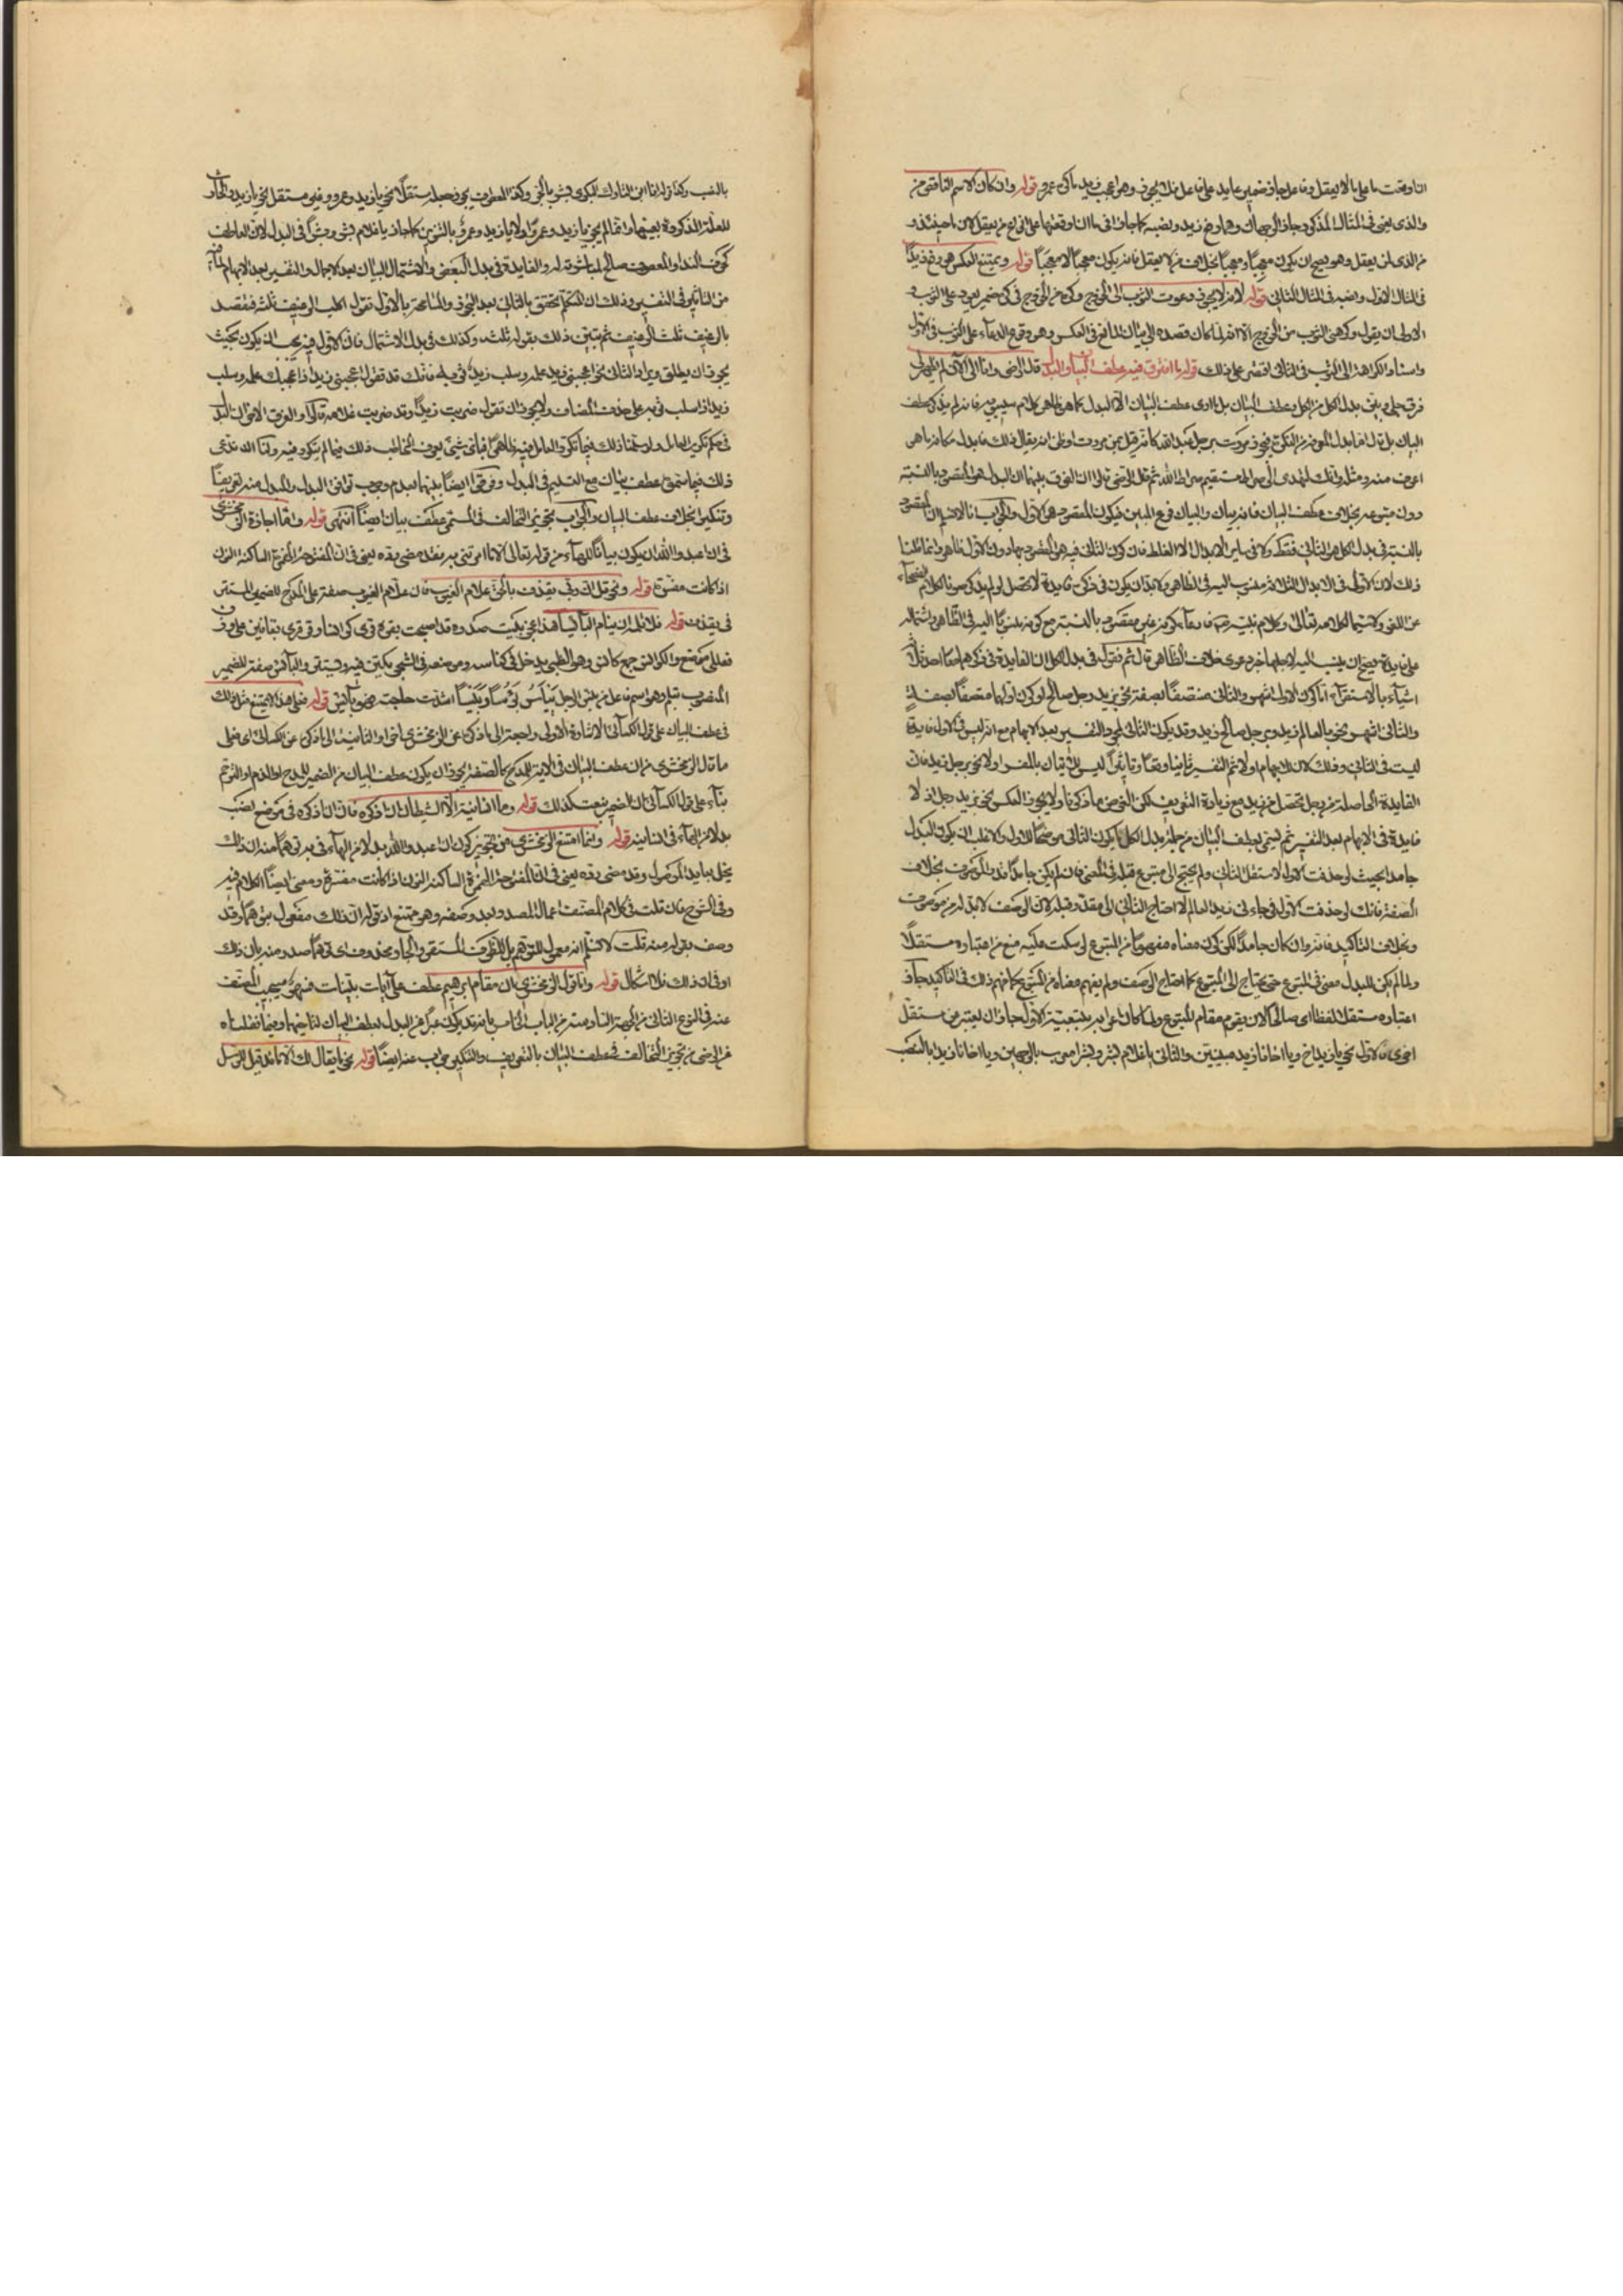 ان اوقعت ما على ما لا يعقل وفاعل جاز ضمير عايد على فاعل فلا يجوز وهو اعجب زيد ما كره عمرو قوله وان كان الاسم الناقص من
والذى يعنى فى المثال المذكور جاز الوجهان وهما رفع زيد ونصبه كما جاز فى ما ان اوقعتها على انواع من يعقل لان حينئذ
من الذى لمن يعقل وهو يصح ان يكون معجبا ومعجبا بخلاف من لا يعقل فانه يكون معجبا لا معجبا قوله ويمتنع العكس هو رفع زيد
فى المثال الاول ونصبه فى المثال الثانى قوله لانه لا يجوز دعوت الثوب الى الخروج وكره من الخروج فى كره ضمير يعود على الثوب و
الاولى ان يقول وكرهنى الثوب من الخروج الا انه لما كان قصده بيان المانع فى العكس وهو وقوع الدعاء على الثوب فى الاول
واسناد الكراهة الى الثوب فى الثانى اقتصر على ذلك قوله ما افترق فيه عطف البيان والبدل قال الرضى وانا الى الآن لم يظهر لى
فرق جلى بين بدل الكل من الكل وعطف البيان بل ارى عطف البيان الا البدل كما هو ظاهر كلام سيبويه فانه لم يذكر عطف
البيان بل قال اما بدل المعرفة من النكرة فنحو مررت برجل عبد الله كانه قيل بمن مررت او ظن انه يقال ذلك فابدل مكانه ما هو
اعرف منه ومثله وانك لتهدى الى صراط مستقيم صراط الله ثم قال الرضى قالوا ان الفرق بينهما ان البدل هو المقصود بالنسبة
دون متبوعه بخلاف عطف البيان فانه بيان والبيان فرع المبين فيكون المقصود هو الاول والجواب انا لا نسلم ان المقصود
بالنسبة فى بدل الكل هو الثانى فقط ولا فى ساير الابدال الا الغلط فان كون الثانى فيه هو المقصود بها دون الاول ظاهر وانما قلنا
ذلك لان الاول فى الابدال الثلاثة منسوب اليه فى الظاهر ولا بد ان يكون فى ذكره فايدة لا تحصل لو لم يذكر صونا لكلام الفصحاء
عن اللغو ولا سيما كلامه تعالى وكلام نبيه فادعاء كونه غير مقصود بالنسبة مع كونه منسوبا اليه فى الظاهر واشتماله
على فايدة يصح ان ينسب اليه لاجلها خروجه دعوى خلاف الظاهر قال ثم نقول فى بدل الكل ان الفايدة فى ذكرهما معا احد ثلاثة
اشياء بالاستقراء اما كون الاول اشهر والثانى متصفا بصفة نحو بزيد رجل صالح او كون اولهما متصفا بصفة
والثانى اشهر نحو بالعالم زيد وبرجل صالح زيد وقد يكون الثانى لمجرد التفسير بعد الابهام مع انه ليس فى الاول فايدة
ليست فى الثانى وذلك لان للابهام اولا ثم التفسير ثانيا وقعا وتأثيرا ليس للاتيان بالمفسر اولا نحو برجل زيد فان
الفايدة الحاصلة من رجل تحصل من زيد مع زيادة التعريف لكن الغرض ما ذكرنا ولا يجوز العكس نحو بزيد رجل اذ لا
فايدة فى الابهام بعد التفسير ثم يسمى بعطف البيان من جملة بدل الكل ما يكون الثانى موضحا للاول والاغلب ان يكون البدل
جامدا بحيث لو حذفت الاول لاستقل الثانى ولم يحتج الى متبوع قبله فى المعنى فان لم يكن جامدا قدر الموصوف بخلاف
الصفة فانك لو حذفت الاول فى جاءنى زيد العالم لاحتاج الثانى الى مقدر قبله لان الوصف لا بد له من موصوف
وبخلاف التاكيد فانه وان كان جامدا لكن كون معناه مفهوما من المتبوع لو سكت عليه منع من اعتباره مستقلا
ولما لم يكن للبدل معنى فى المتبوع حتى يحتاج الى المتبوع كما احتاج الوصف ولم يفهم معناه من المتبوع كما فهم ذلك فى التاكيد جاز
اعتباره مستقلا لفظا اى صالحا لان يقوم مقام المتبوع ولما كان اعرابه بتبعيته الاول جاز ان يعتبر غير مستقل
اخرى فالاول نحو يا زيد اخ ويا اخانا زيد مبنيين والثانى يا غلام بشر وبشرا معرب بالوجهين ويا اخانا زيدا بالنصب
بالنصب وكذا قوله انا ابن التارك البكرى بشر بالجر وكذا المعطوف يجوز جعله مستقلا نحو يا زيد وعمرو وغير مستقل نحو يا زيد والحارث
للعلة المذكورة بعينها وانما لم يجز يا زيد وعمرا ولا يا زيد وعمرو بالتنوين كما جاز يا غلام بشر وبشرا فى البدل لان العاطف
كحرف النداء والمعطوف صالح لمباشرته له والفايدة فى بدل البعض والاشتمال البيان بعد الاجمال والتفسير بعد الابهام لما فيه
من التاثير فى النفس وذلك ان المتكلم يحقق بالثانى بعد التجوز والمسامحة بالاول تقول اكلت الرغيف ثلثه فتقصد
بالرغيف ثلث الرغيف ثم تبين ذلك بقولك ثلثه وكذلك فى بدل الاشتمال فان الاول فيه يجب ان يكون بحيث
يجوز ان يطلق ويراد الثانى نحو اعجبنى زيد علمه وسلب زيد ثوبه فانك قد تقول اعجبنى زيد اذا اعجبك علمه وسلب
زيد اذا سلب ثوبه على حذف المضاف ولا يجوز ان تقول ضربت زيدا وقد ضربت غلامه قالوا والفرق الاخر ان البدل
فى حكم تكرير العامل ولو سلمنا ذلك فيما تكرر العامل فيه ظاهرا فباى شىء يعرف المخاطب ذلك فيما لم يتكرر فيه ولنا ان ندعى
ذلك فيما سمى عطف بيان مع التسليم فى البدل وفرقوا ايضا بينهما بعدم وجوب توافق البدل والمبدل منه تعريفا
وتنكيرا بخلاف عطف البيان والجواب تجويز التخالف فى المسمى عطف بيان ايضا انتهى قوله واما اجازة الزمخشرى
فى ان اعبدوا الله ان يكون بيانا للهاء من قوله تعالى الا ما امرتنى به فقد مضى رده يعنى فى ان المفتوحة الهمزة الساكنة النون
اذا كانت مفسرة قوله ونحو قل ان ربى يقذف بالحق علام الغيوب فان علام الغيوب صفة على المدح للضمير المستتر
فى يقذف قوله فلا تلمه ان ينام البائسا هذا عجز بيت صدره قد اصبحت بقرقرى كوانسا وقرقرى بقافين على وزن
فعللى موضع والكوانس جمع كانس وهو الظبى يدخل فى كناسه وهو موضعه فى الشجر يكتن فيه ويستتر والبائس صفة للضمير
المنصوب قبله وهو اسم فاعل من بئس الرجل يبأس بؤسا وبئيسا اشتدت حاجته فهو بائس قوله فعلى هذا لا يمتنع مثل ذلك
فى عطف البيان على قول الكسائى الاشارة الاولى راجعة الى ما ذكره عن الزمخشرى اخيرا والثانية الى ما ذكره عن الكسائى اى فعلى
ما قال الزمخشرى من ان عطف البيان فى الآية للمدح كالصفة يجوز ان يكون عطف البيان من الضمير للمدح او الذم او الترحم
بناء على قول الكسائى ان الضمير ينعت كذلك قوله وما انسانيه الا الشيطان ان اذكره فان ان اذكره فى موضع نصب
بدلا من الهاء فى انسانيه قوله وانما امتنع الزمخشرى من تجويز كون ان اعبدوا الله بدلا من الهاء فى به توهما منه ان ذلك
يخل بعايد الموصول وقد مضى رده يعنى فى ان المفتوحة الهمزة الساكنة النون اذا كانت مفسرة ومضى ايضا الكلام فيه
وفى الشرح فان قلت فى كلام المصنف اعمال المصدر بعد وصفه وهو ممتنع اذ قوله ان ذلك مفعول بتوهما وقد
وصف بقوله منه قلت لا نسلم انه معمول للتوهم بل للظرف المستقر والجار محذوف اى توهما صدر منه بان ذلك
او فى ان ذلك فلا اشكال قوله واما قول الزمخشرى ان مقام ابرهيم عطف على آيات بينات فسهو سيجيب المصنف
عنه فى النوع الثانى من الجهة السادسة من الباب الخامس بانه قد يكون عبر عن البدل بعطف البيان لتآخيهما وفيما نقلناه
عن الرضى من تجويز التخالف فى عطف البيان بالتعريف والتنكير جواب عنه ايضا قوله نحو ما يقال لك الا ما قد قيل للرسل